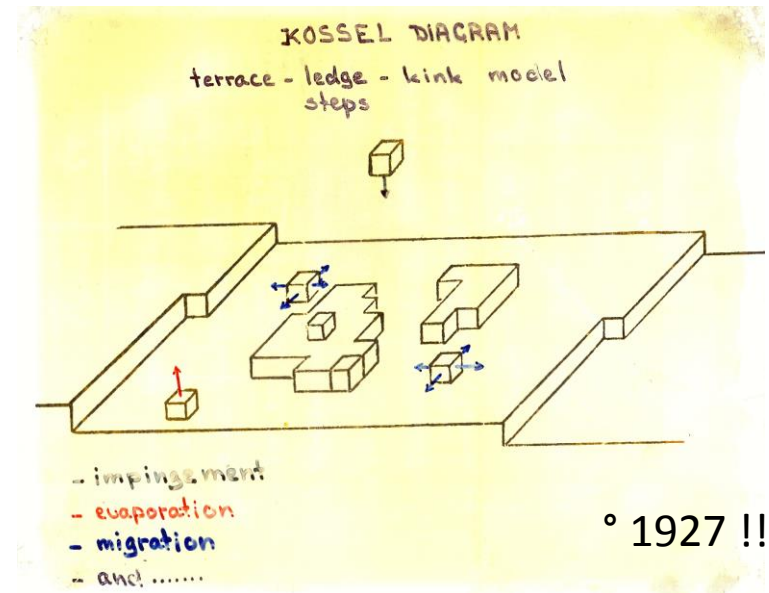 KOSSEL DIAGRAM
terrace - ledge - kink model
steps
- impingement
- evaporation
- migration
- and .......
° 1927 !!